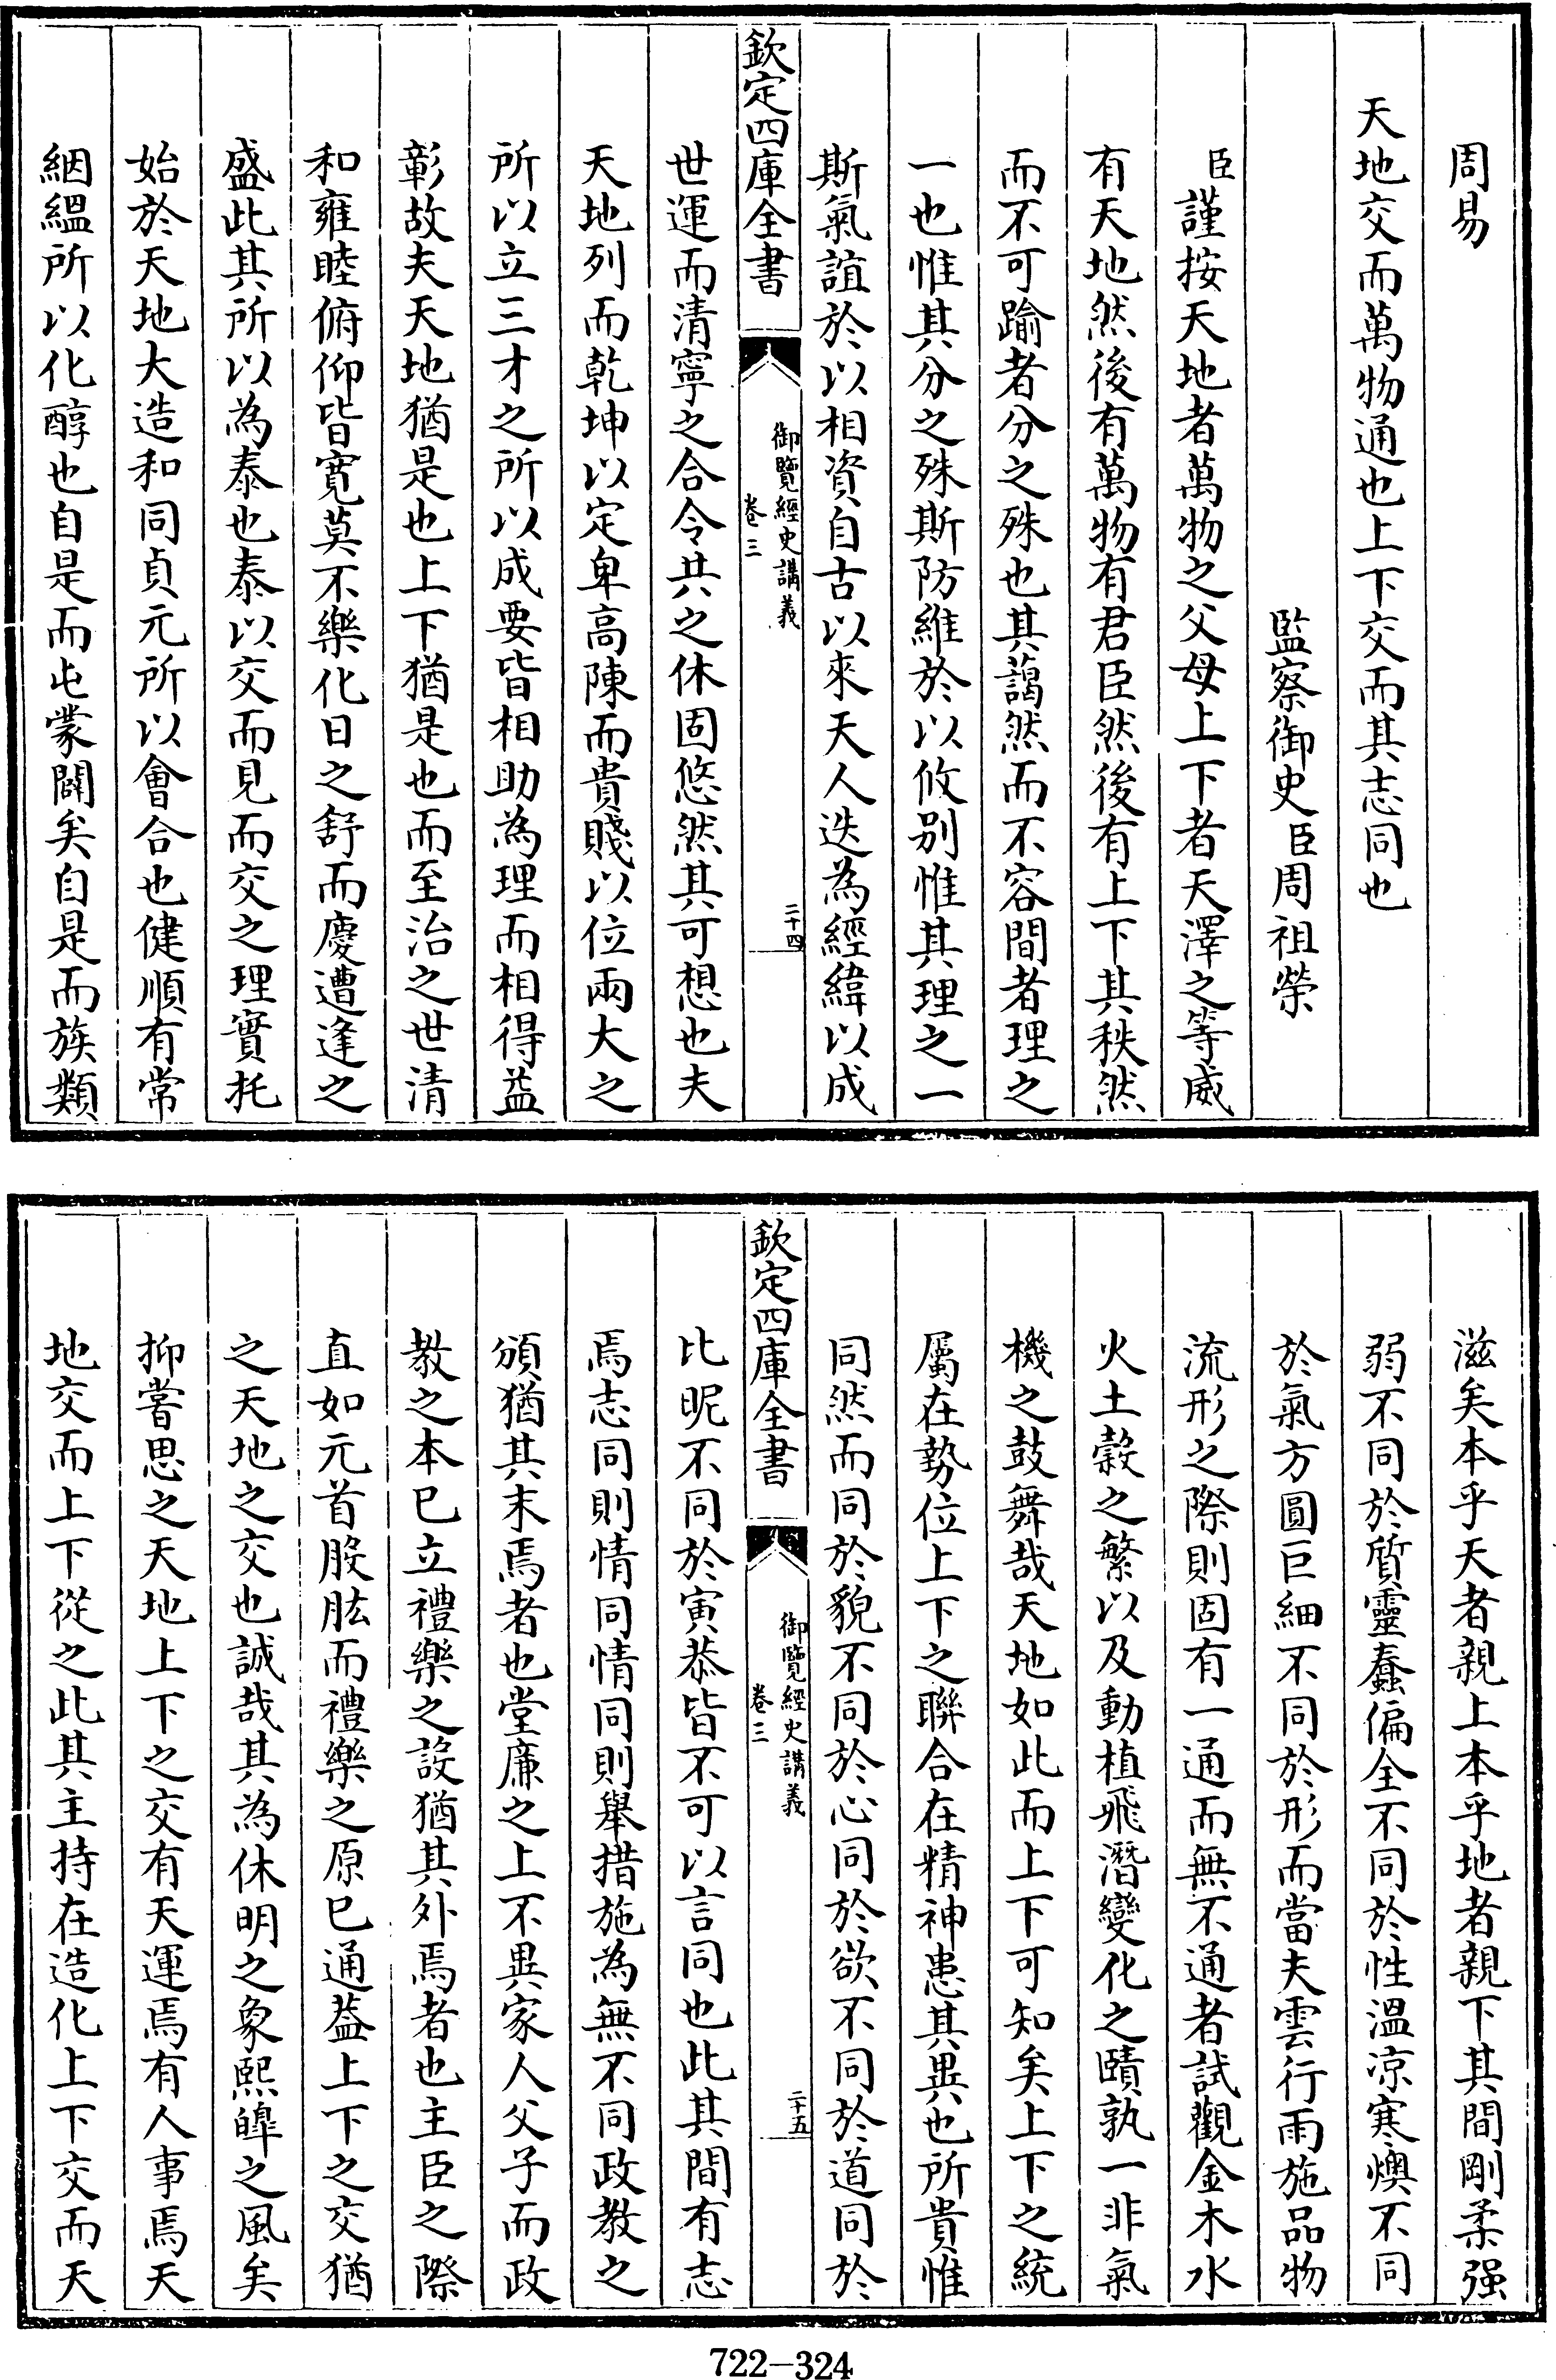 周易
天地交而萬物通也上下交而其志同也
監察御史臣周祖榮
臣謹按天地者萬物之父母上下者天澤之等威
有天地然後有萬物有君臣然後有上下其秩然
而不可踰者分之殊也其藹然而不容間者理之
一也惟其分之殊斯防維於以攸别惟其理之一
斯氣誼於以相資自古以來天人迭為經緯以成
欽定四庫全書
御覽經史講義
卷三
二十四
世運而清寧之合令共之休固悠然其可想也夫
天地列而乾坤以定卑高陳而貴賤以位兩大之
所以立三才之所以成要皆相助為理而相得益
彰故夫天地猶是也上下猶是也而至治之世清
和雍睦俯仰皆寛莫不樂化日之舒而慶遭逢之
盛此其所以為泰也泰以交而見而交之理實托
始於天地大造和同貞元所以會合也健順有常
絪緼所以化醇也自是而屯蒙闢矣自是而族類
滋矣本乎天者親上本乎地者親下其間剛柔强
弱不同於質靈蠢偏全不同於性溫凉寒燠不同
於氣方圓巨細不同於形而當夫雲行雨施品物
流形之際則固有一通而無不通者試觀金木水
火土榖之繁以及動植飛潛變化之賾孰一非氣
機之鼓舞哉天地如此而上下可知矣上下之統
屬在勢位上下之聯合在精神患其異也所貴惟
同然而同於貌不同於心同於欲不同於道同於
欽定四庫全書
御覽經史講義
卷三
二十五
比昵不同於寅恭皆不可以言同也此其間有志
焉志同則情同情同則舉措施為無不同政教之
頒猶其末焉者也堂廉之上不異家人父子而政
教之本巳立禮樂之設猶其外焉者也主臣之際
直如元首股肱而禮樂之原巳通葢上下之交猶
之天地之交也誠哉其為休明之象熙皡之風矣
抑嘗思之天地上下之交有天運焉有人事焉天
地交而上下從之此其主持在造化上下交而天
722-324